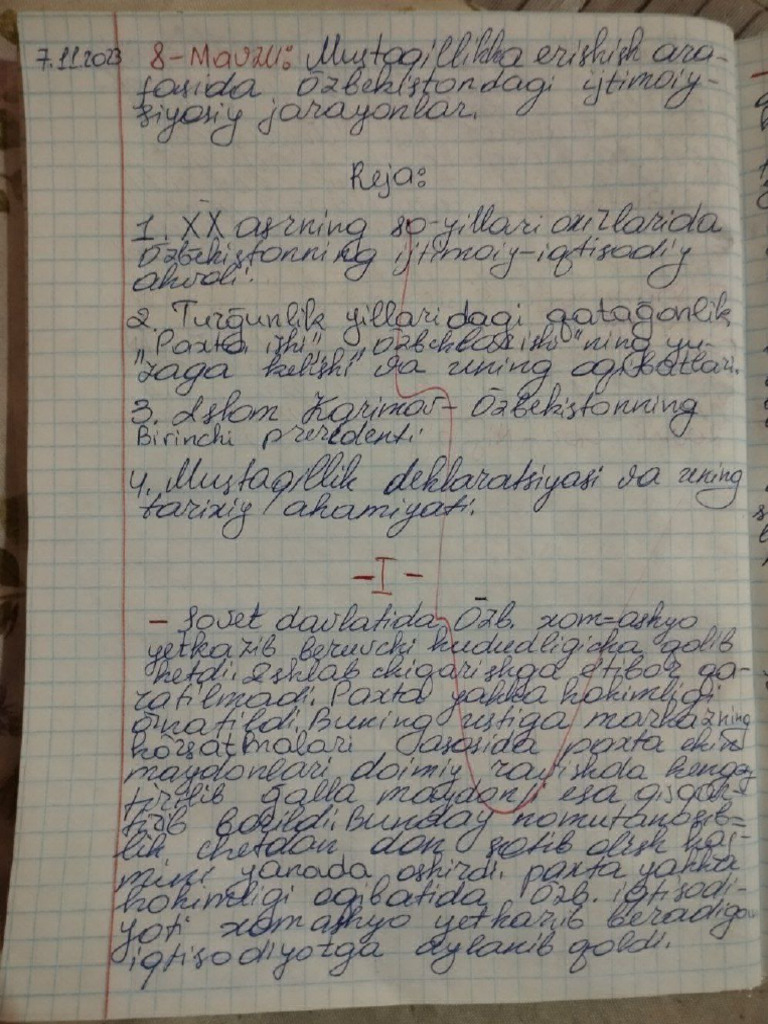 7.11.2023 8-Mavzu: Mustaqillikka erishish ara-
fasida Ōzbekistondagi ijtimoiy-
siyosiy jarayonlar.
Reja:
1. XX asrning 80-yillari oxirlarida
Ōzbekistonning ijtimoiy-iqtisodiy
ahvoli.
2. Turğunlik yillaridagi qatağonlik
"Paxta ishi", "Ōzbeklar ishi"ning yu-
zaga kelishi va uning oqibatlari.
3. Islom Karimov - Ōzbekistonning
Birinchi prezidenti
4. Mustaqillik deklaratsiyasi va uning
tarixiy ahamiyati.
- I -
- Sovet davlatida Ōzb. xom=ashyo
yetkazib beruvchi hududligicha qolib
ketdi. Ishlab chiqarishga etibor qa-
ratilmadi. Paxta yakka hokimligi
ōrnatildi. Buning ustiga markazning
kōrsatmalari asosida paxta
maydonlari doimiy ravishda kengay
tirilib ğalla maydoni esa qisqar-
tirib borildi. Bunday nomutanosib=
lik chetdan don sotib olish haj-
mini yanada oshirdi. paxta yakka
hokimligi oqibatida Ōzb. iqtisodi-
yoti xom ashyo yetkazib beradigan
iqtisodiyotga aylanib qoldi.